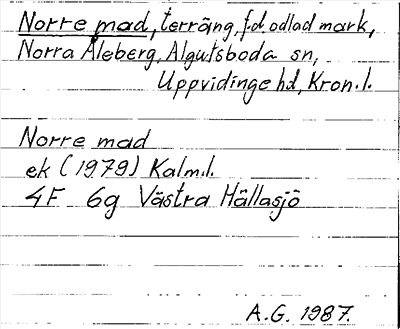 Norre mad, terräng, f.d odlad mark,
Norra Åleberg, Algutsboda sn,
Uppvidinge hd, Kron.l.
Norre mad
ek (1979) Kalm.l.
4F 6g Västra Hällasjö
A.G. 1987.